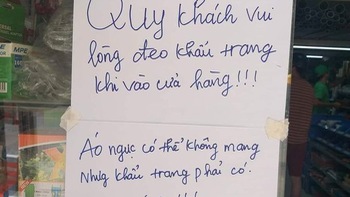 Quý khách vui
lòng đeo khẩu trang
khi vào cửa hàng!!!
Áo ngực có thể không mang
Nhưg khẩu trang phải có.
MPE